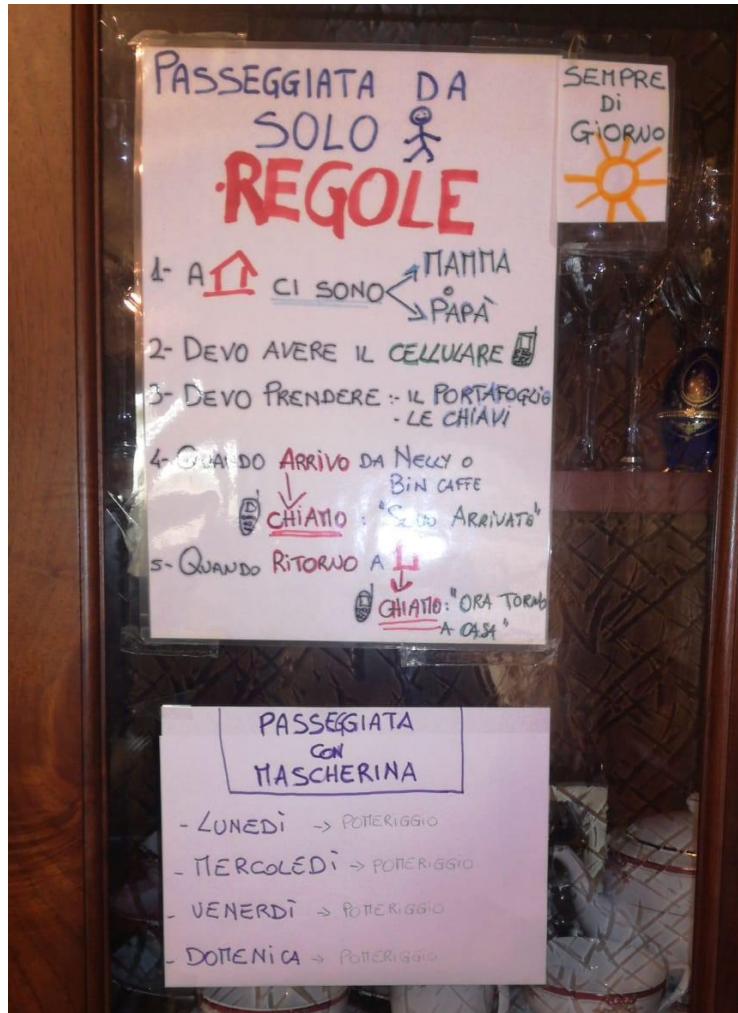 PASSEGGIATA DA
SOLO
REGOLE
SEMPRE
Di
GiORNO
1- A CI SONO MAMMA
O
PAPÀ
2- DEVO AVERE IL CELLULARE
3- DEVO PRENDERE :- IL PORTAFOGLIO
- LE CHIAVI
4- QUANDO ARRIVO DA NELLY O
BIN CAFFE
CHIAMO : "SONO ARRIVATO"
5- QUANDO RITORNO A
CHIAMO: "ORA TORNO
A CASA"
PASSEGGIATA
CON
MASCHERINA
- LUNEDÌ -> POMERIGGIO
- MERCOLEDÌ -> POMERIGGIO
- VENERDÌ -> POMERIGGIO
- DOMENICA -> POMERIGGIO